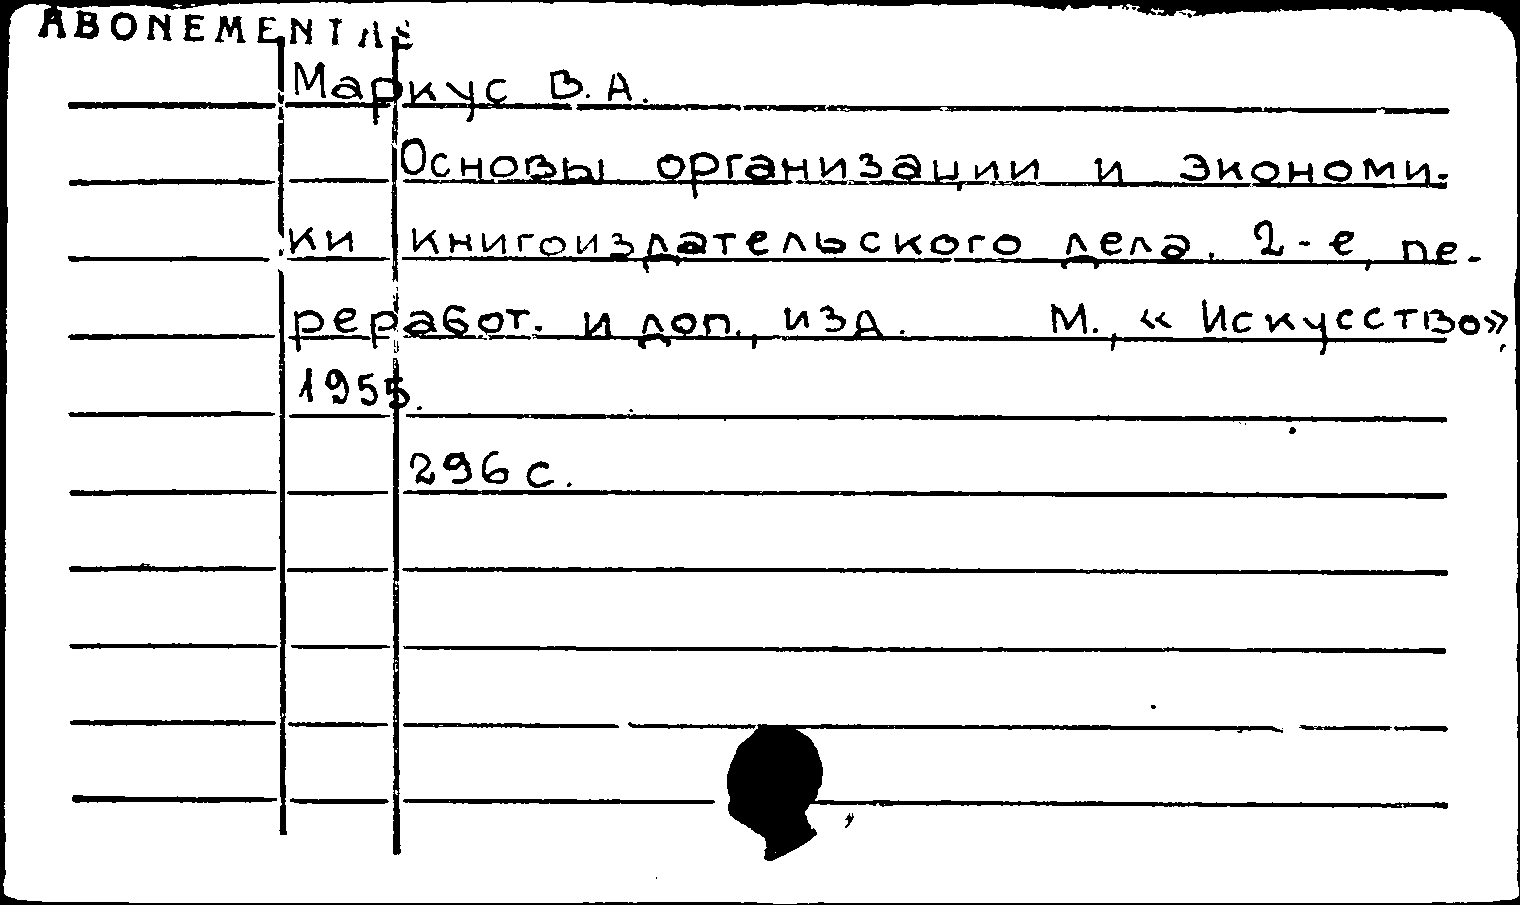 ABONEMENTĀ
Маркус В. А.
Основы организации и экономи-
ки книгоиздательского дела. 2-е, пе-
реработ. и доп., изд. М., « Искусство»,
1955.
296 с.